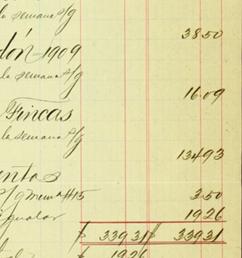 la semana s/g
38.50
dón - 1909
la semana s/g
16.09
Fincas
la semana s/g
134.93
entos
s/g mema #15 3.50
igualar 19.26
$ 339.31 $ 339.31
$ 19.26